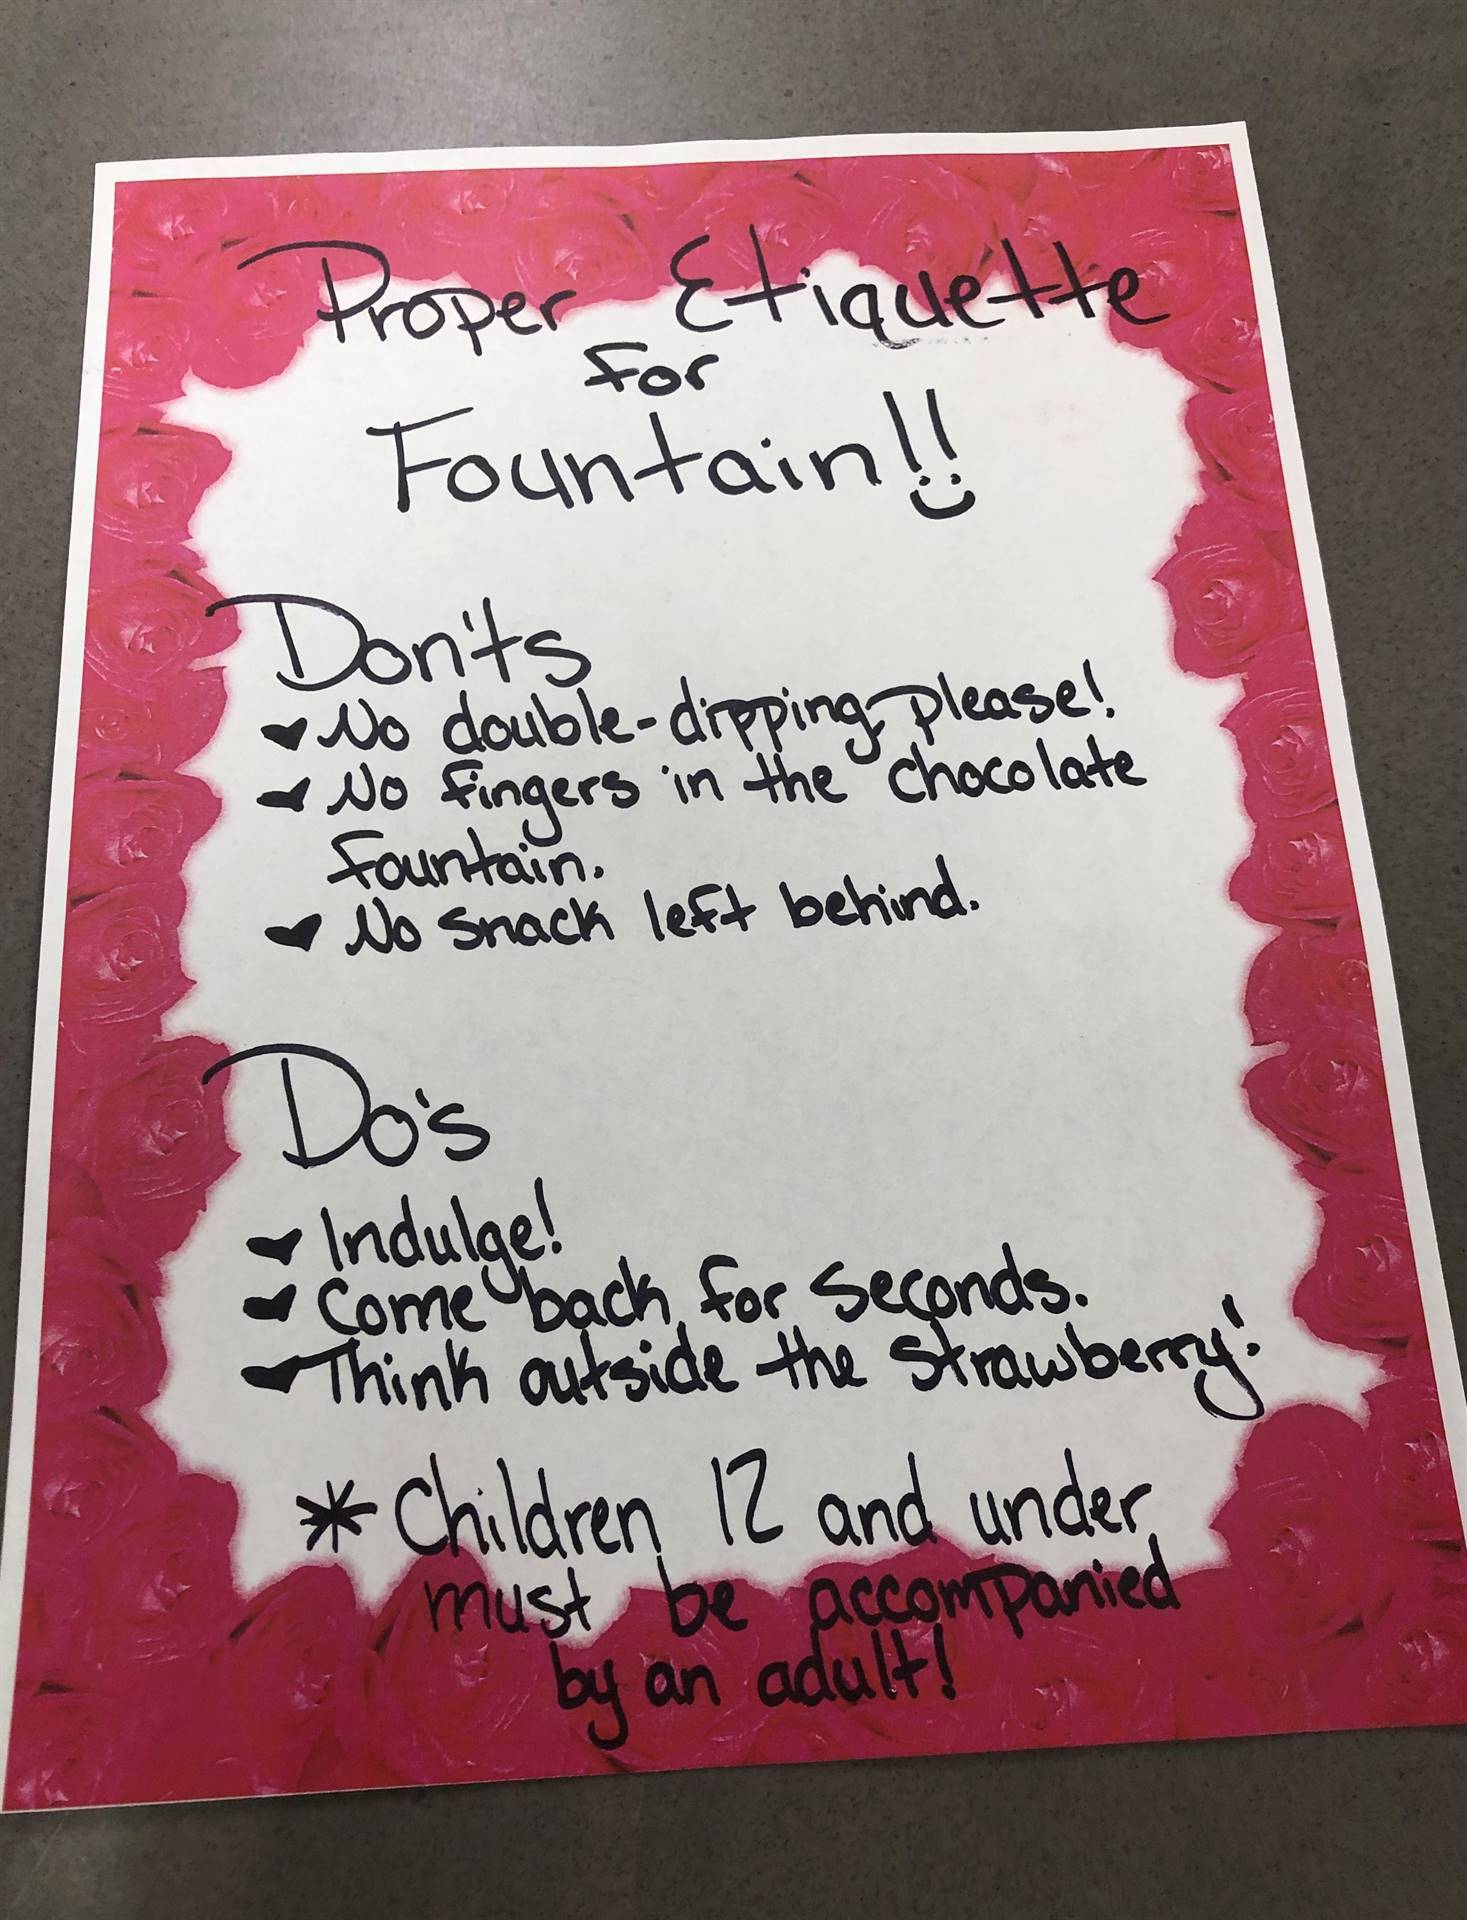 Proper Etiquette
for
Fountain!!
Don'ts
No double-dipping please!
No fingers in the chocolate
fountain.
No snack left behind.
Do's
Indulge!
Come back for seconds.
Think outside the strawberry!
* Children 12 and under
must be accompanied
by an adult!